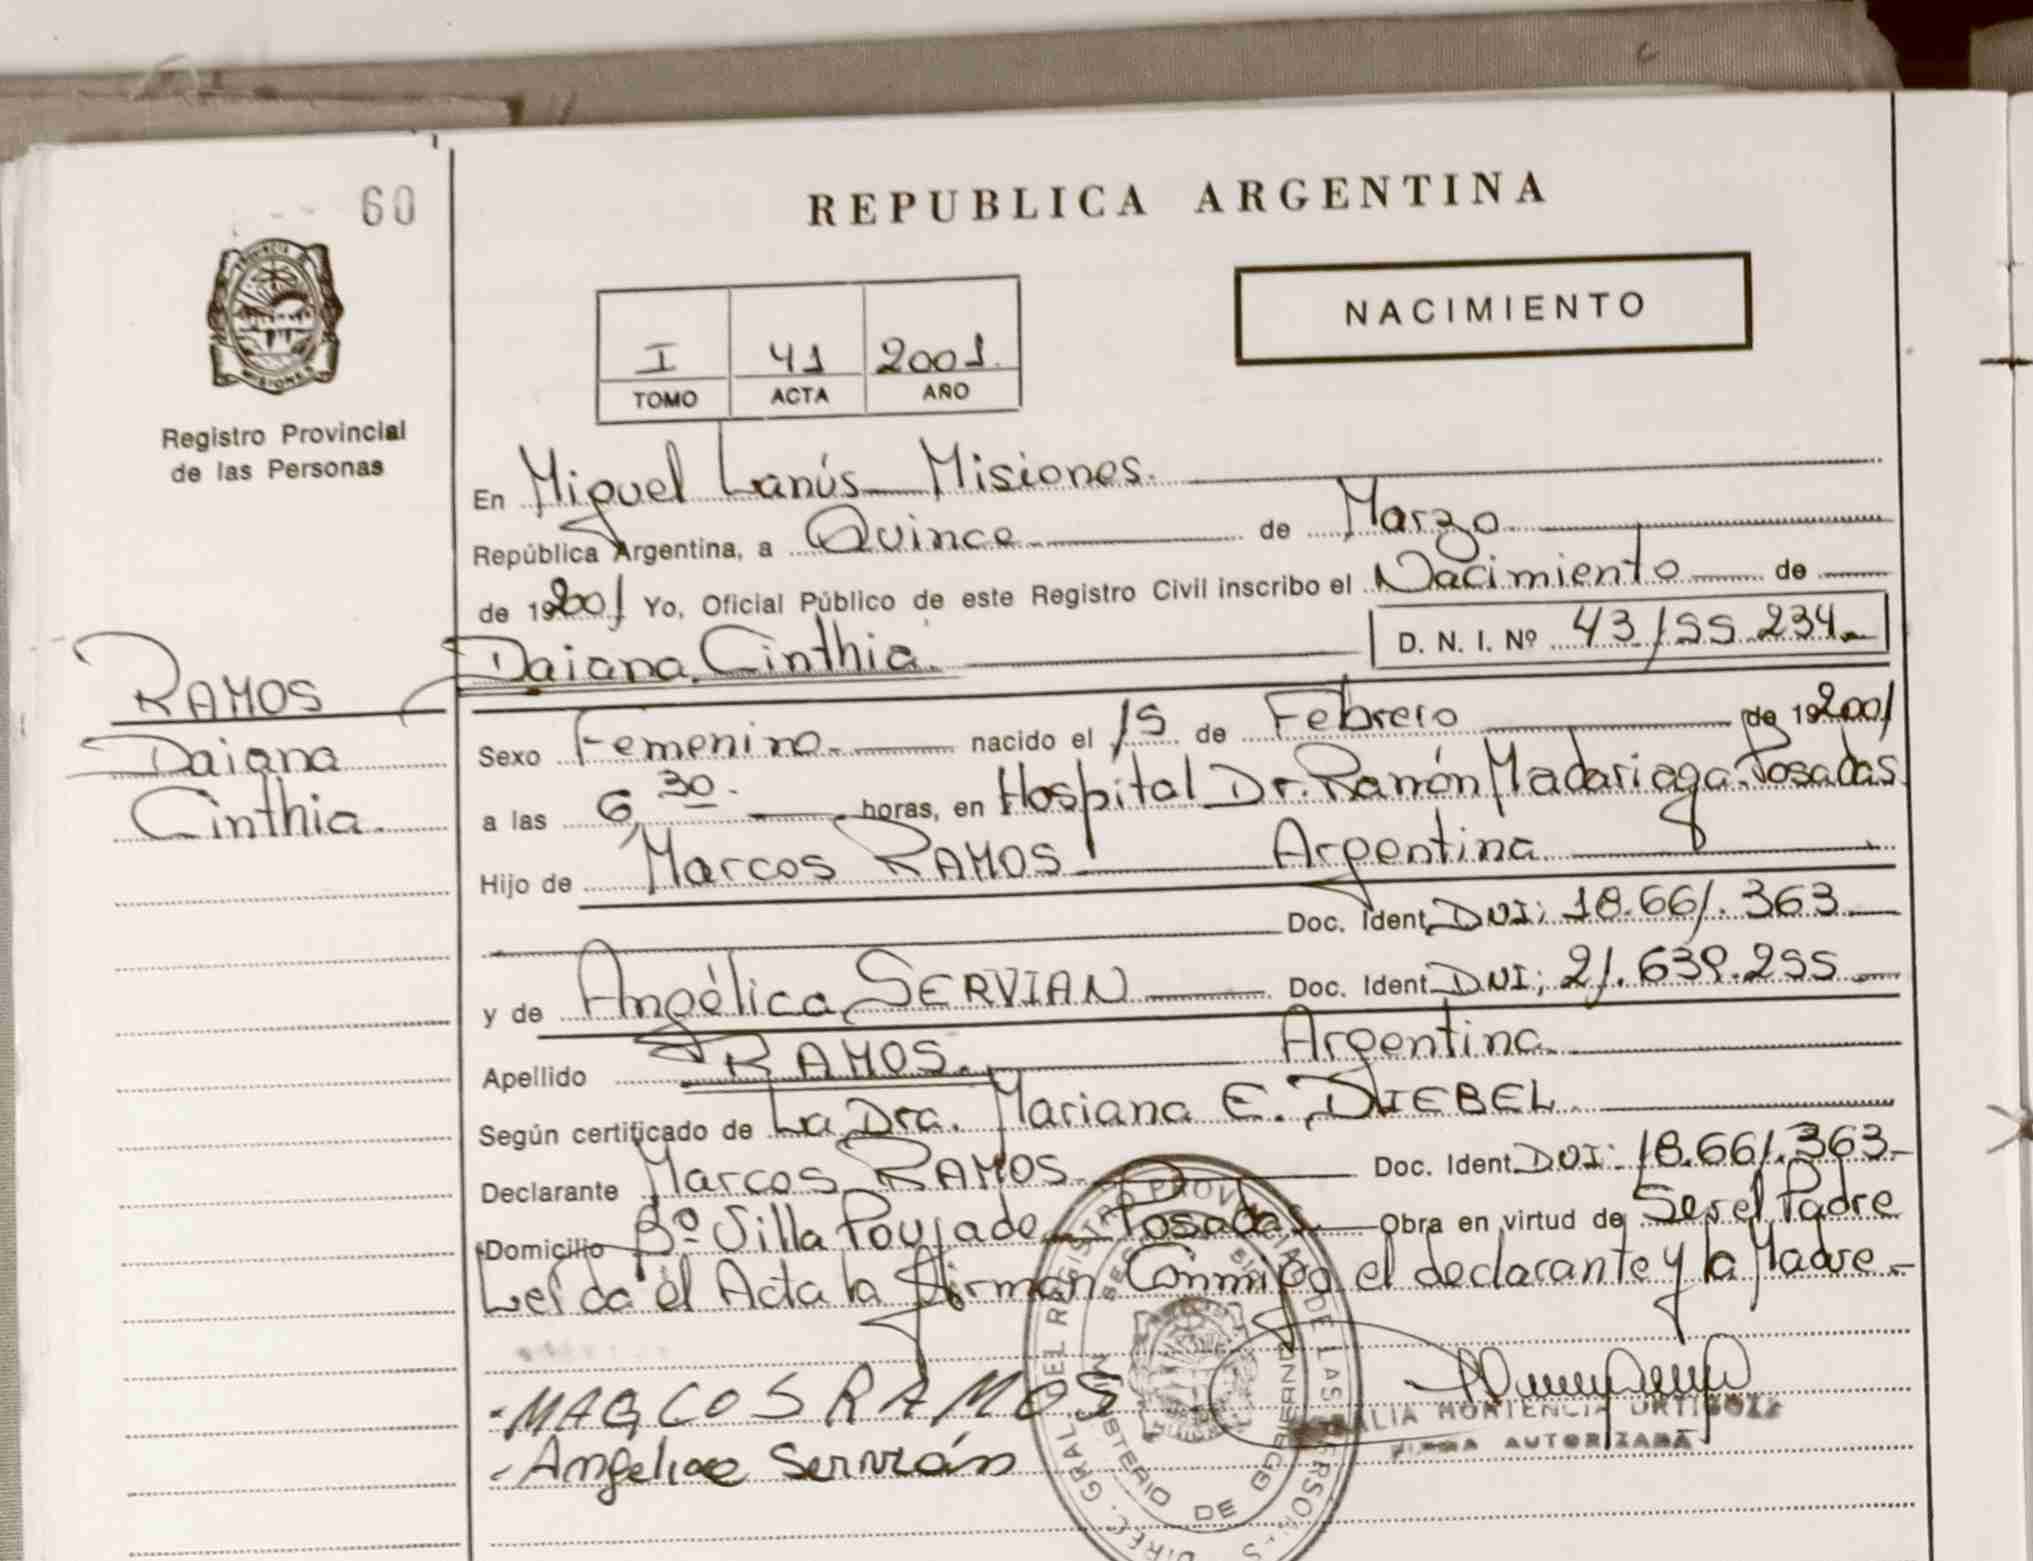 60
REPUBLICA ARGENTINA
NACIMIENTO
I 41 2001.
TOMO ACTA AÑO
PROVINCIA DE
MISIONES
Registro Provincial
de las Personas
En Miguel Lanús Misiones.
República Argentina, a Quince de Marzo
de 192001 Yo, Oficial Público de este Registro Civil inscribo el Nacimiento de
Daiana Cinthia. D. N. I. Nº 43/55.234.
RAMOS
Daiana
Cinthia.
Sexo Femenino. nacido el 15 de Febrero de 192001
a las 6,30. horas, en Hospital Dr. Ramón Madariaga. Posadas.
Hijo de Marcos RAMOS Argentina
Doc. Ident. DNI; 18.661.363
y de Angélica SERVIAN Doc. Ident. DNI; 21.639.255
Apellido RAMOS. Argentina
Según certificado de La Dra. Mariana E. DIEBEL
Declarante Marcos RAMOS Doc. Ident. DNI: 18.661.363
Domicilio Bº Villa Poujade Posadas. Obra en virtud de Ser el Padre
Leída el Acta la firman Conmigo el declarante y la Madre
MARCOS RAMOS
Angelica Servián
HORTENCIA
FIRMA AUTORIZADA
DIREC. GRAL DEL REGISTRO PROVINCIAL DE LAS PERSONAS
MINISTERIO DE GOBIERNO